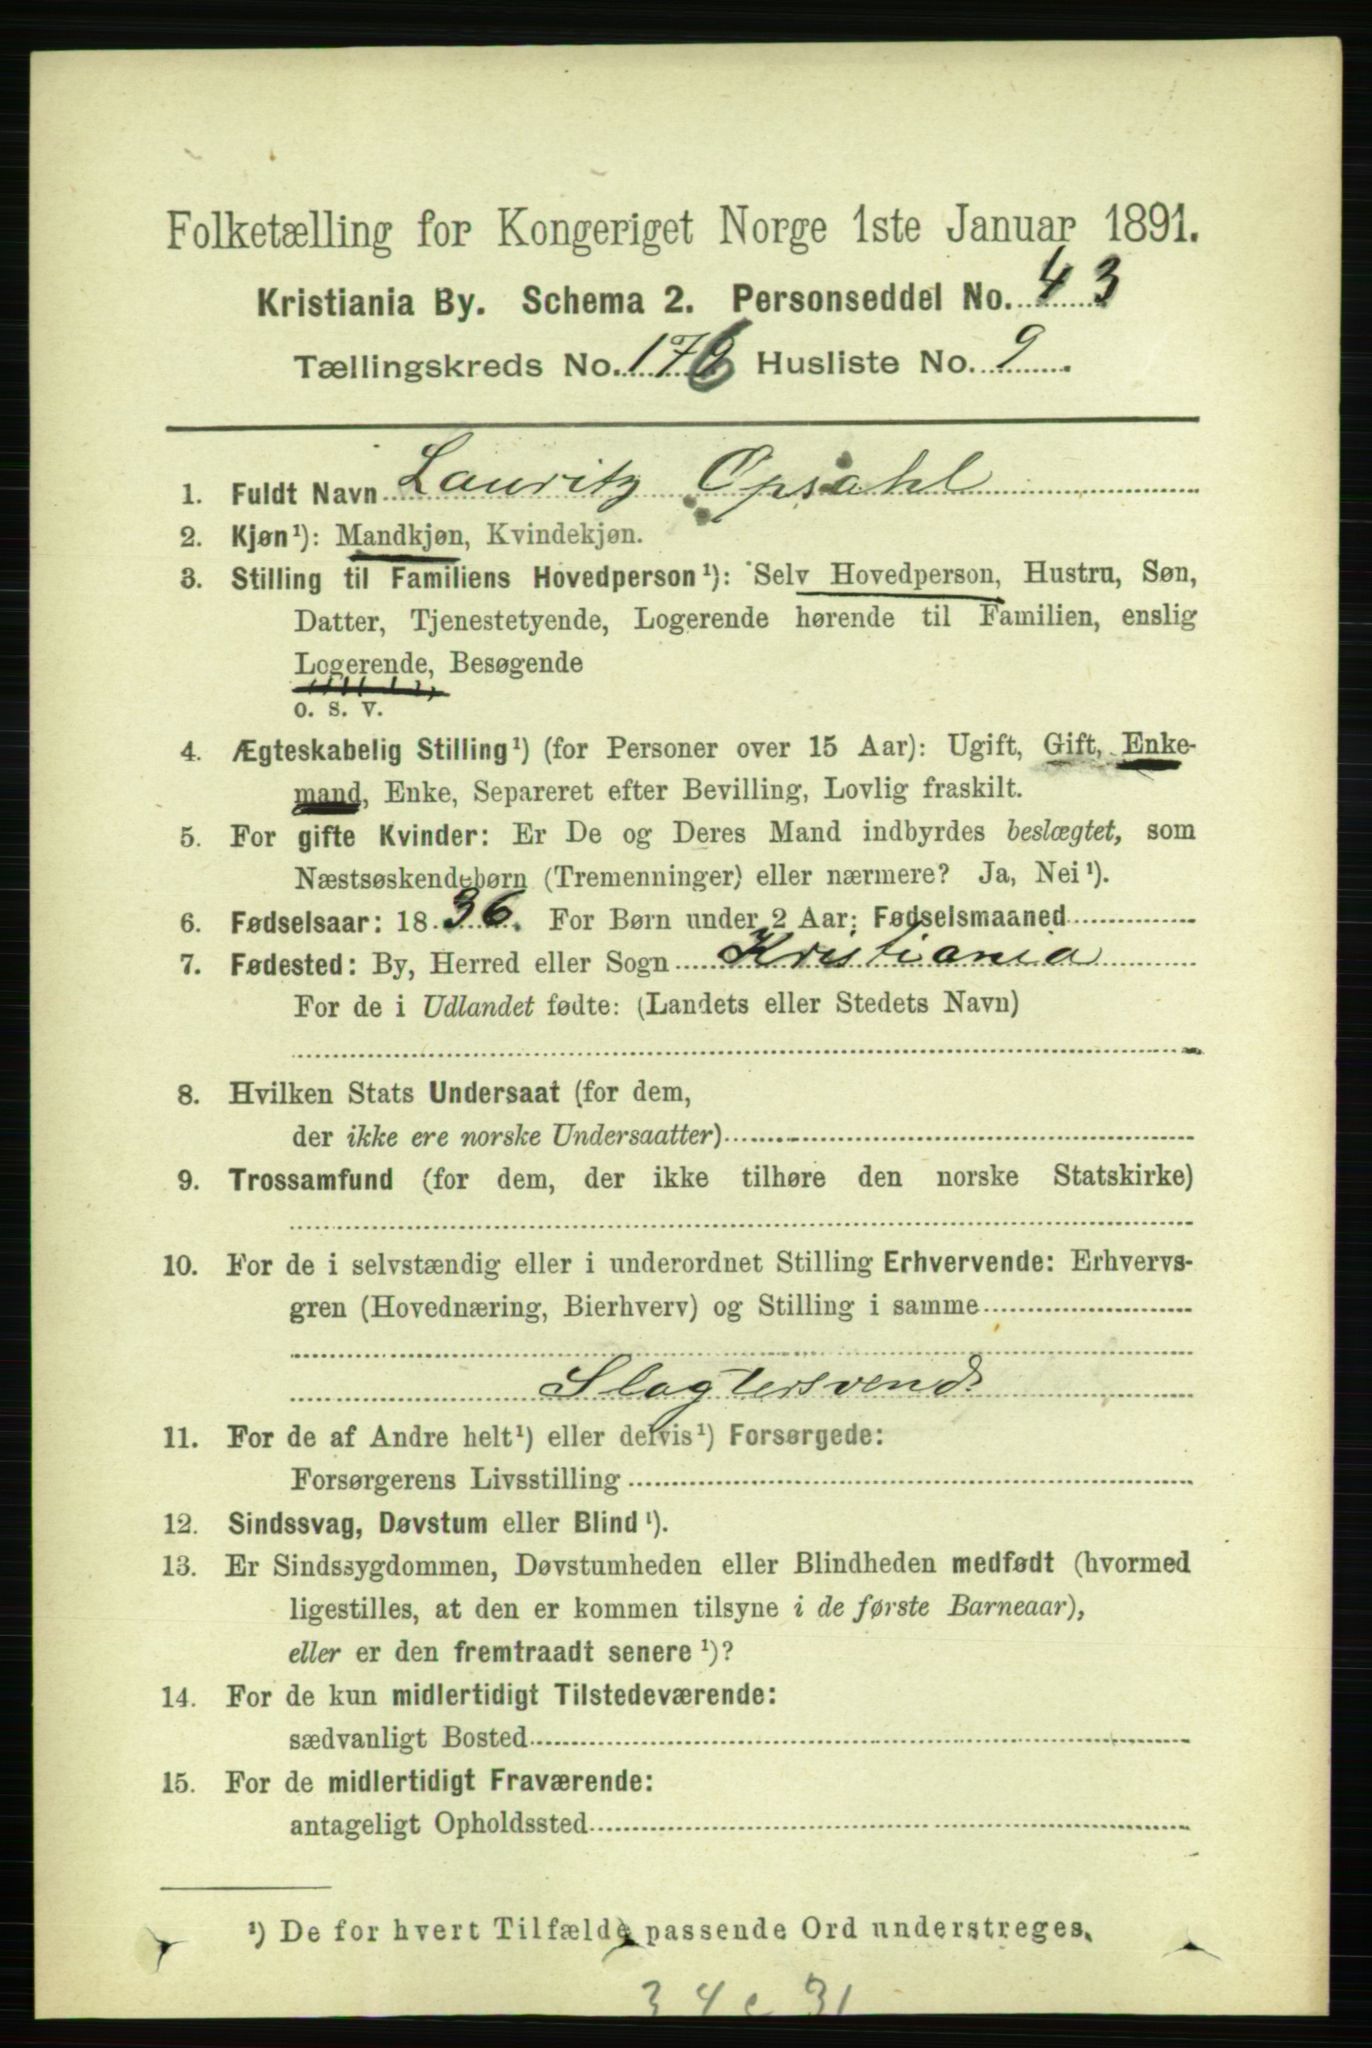 Folketælling for Kongeriget Norge 1ste Januar 1891.
Kristiania By. Schema 2. Personseddel No. 43
Tællingskreds No. 176 Husliste No. 9
1. Fuldt Navn Lauritz Opsahl
2. Kjøn¹): Mandkjøn, Kvindekjøn.
3. Stilling til Familiens Hovedperson¹): Selv Hovedperson, Hustru, Søn,
Datter, Tjenestetyende, Logerende hørende til Familien, enslig
Logerende, Besøgende
o. s. v.
4. Ægteskabelig Stilling¹) (for Personer over 15 Aar): Ugift, Gift, Enke-
mand, Enke, Separeret efter Bevilling, Lovlig fraskilt.
5. For gifte Kvinder: Er De og Deres Mand indbyrdes beslægtet, som
Næstsøskendebørn (Tremenninger) eller nærmere? Ja, Nei¹).
6. Fødselsaar: 1836. For Børn under 2 Aar: Fødselsmaaned
7. Fødested: By, Herred eller Sogn Kristiania
For de i Udlandet fødte: (Landets eller Stedets Navn)
8. Hvilken Stats Undersaat (for dem,
der ikke ere norske Undersaatter)
9. Trossamfund (for dem, der ikke tilhøre den norske Statskirke)
10. For de i selvstændig eller i underordnet Stilling Erhvervende: Erhvervs-
gren (Hovednæring, Bierhverv) og Stilling i samme
Slagtersvend
11. For de af Andre helt¹) eller delvis¹) Forsørgede:
Forsørgerens Livsstilling
12. Sindssvag, Døvstum eller Blind¹).
13. Er Sindssygdommen, Døvstumheden eller Blindheden medfødt (hvormed
ligestilles, at den er kommen tilsyne i de første Barneaar),
eller er den fremtraadt senere¹)?
14. For de kun midlertidigt Tilstedeværende:
sædvanligt Bosted
15. For de midlertidigt Fraværende:
antageligt Opholdssted
¹) De for hvert Tilfælde passende Ord understreges.